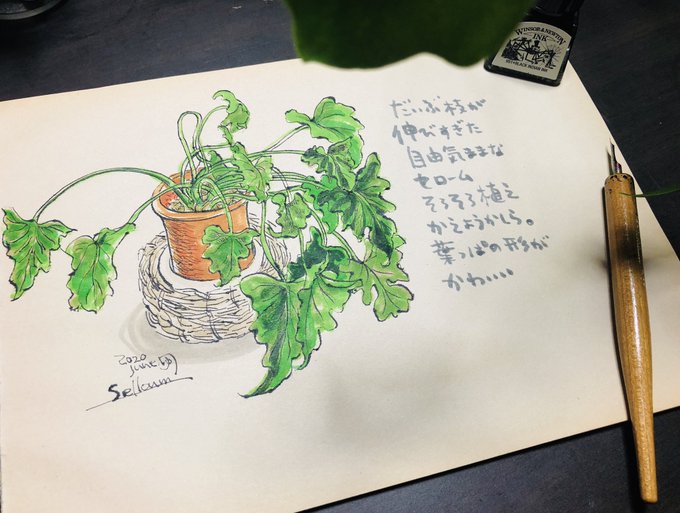 WINSOR & NEWTON
INK
だいぶ枝が
伸びすぎた
自由気ままな
セローム
そろそろ植え
かえようかしら。
葉っぱの形が
かわいい
2020
June
Selloum